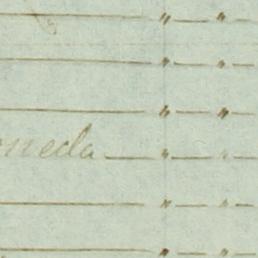 〃 〃
〃 〃
〃 〃
oneda 〃 〃
〃 〃
〃 〃